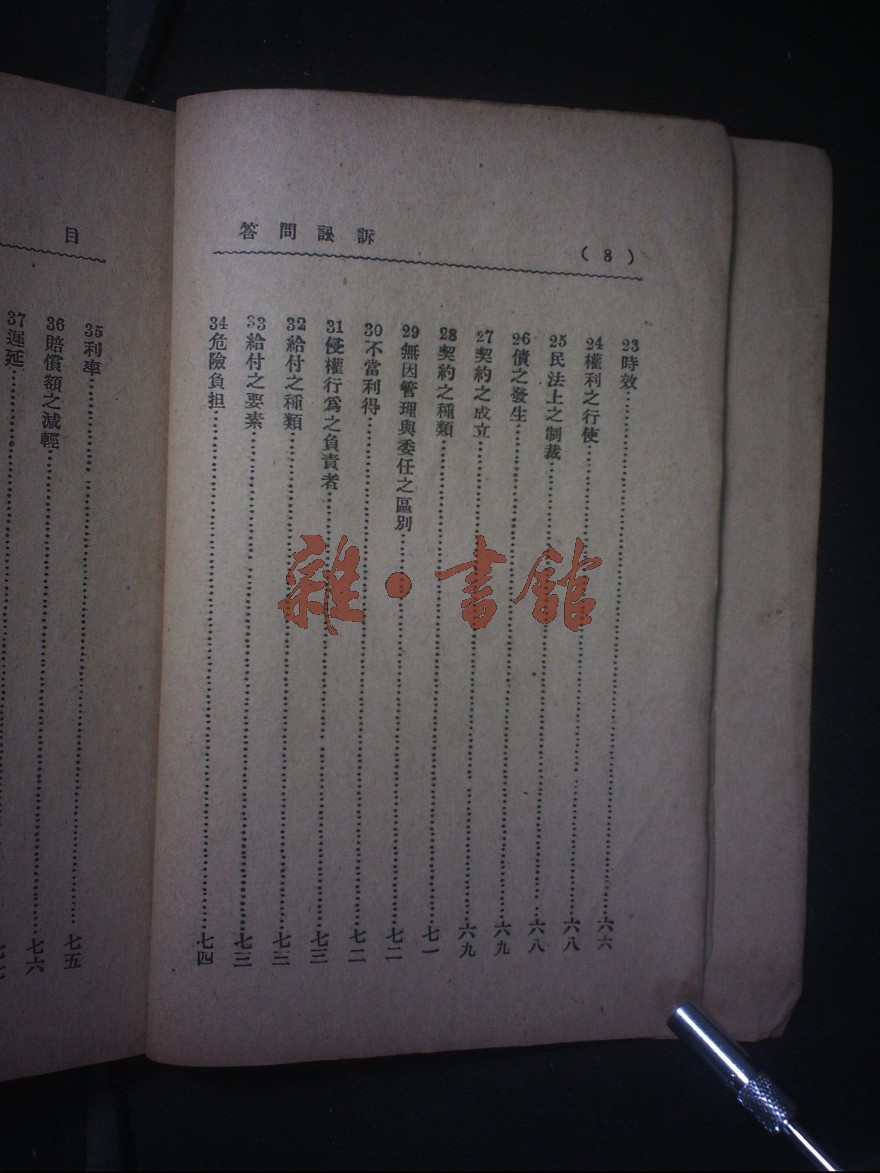 訴訟問答
(8)
23時效……六六
24權利之行使……六八
25民法上之制裁……六八
26債之發生……六八
27契約之成立……六九
28契約之種類……六九
29無因管理與委任之區別……七一
30不當利得……七二
31侵權行爲之負責者……七二
32給付之種類……七三
33給付之要素……七三
34危險負担……七四
目
35利率……七五
36賠償額之減輕……七六
37遲延……
雜·書館